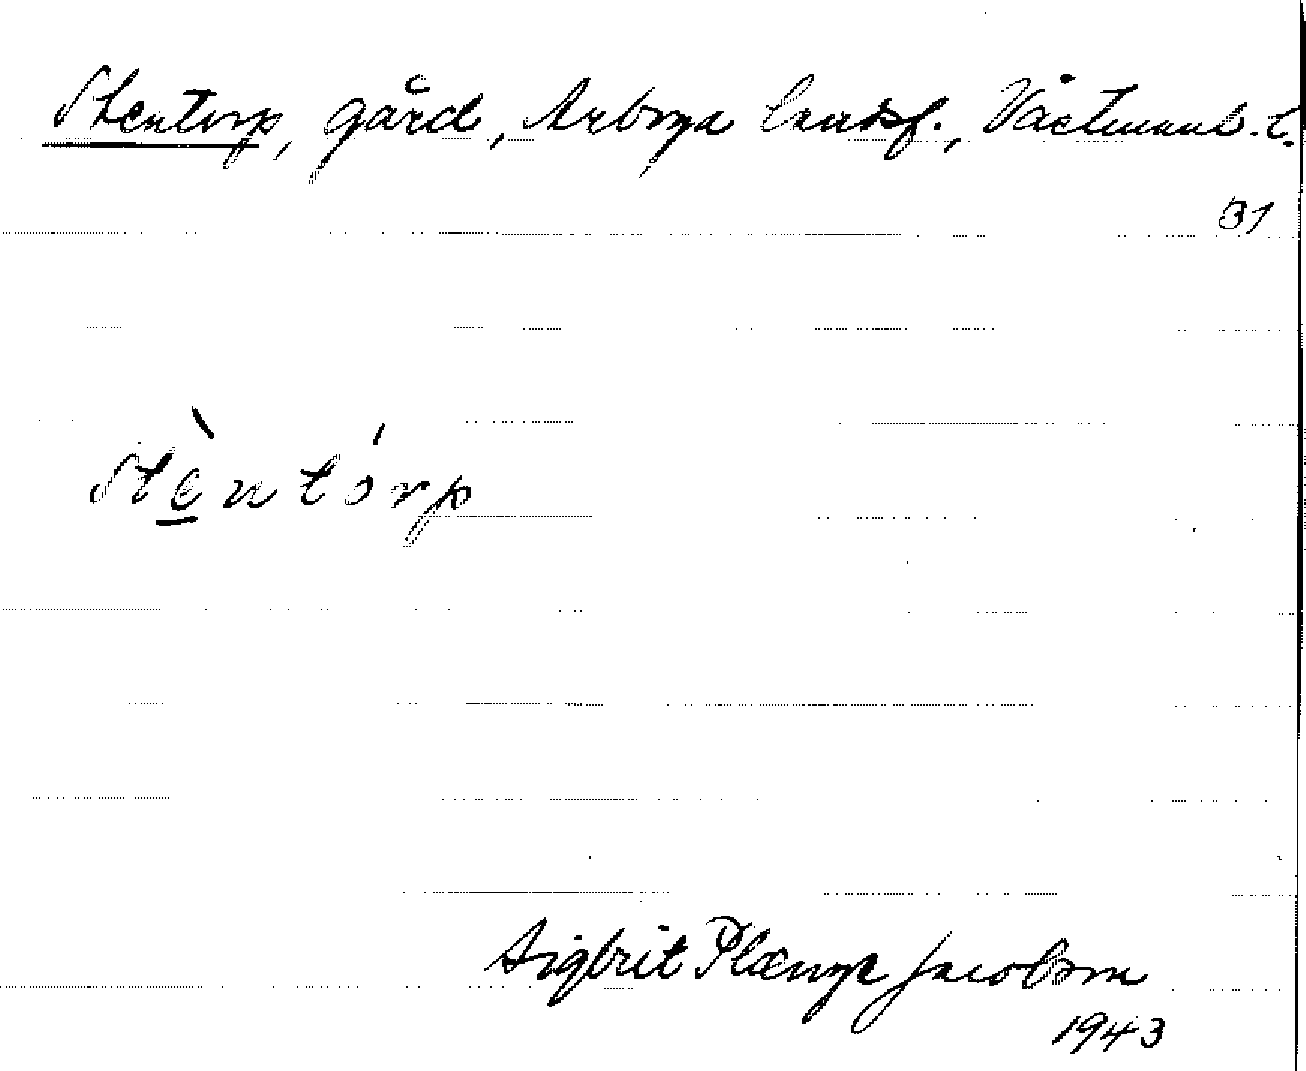 Stentorp, gård, Arboga landsf., Västmanl. l.
31
Stèntórp
Sigbrit Plænge Jacobson
1943